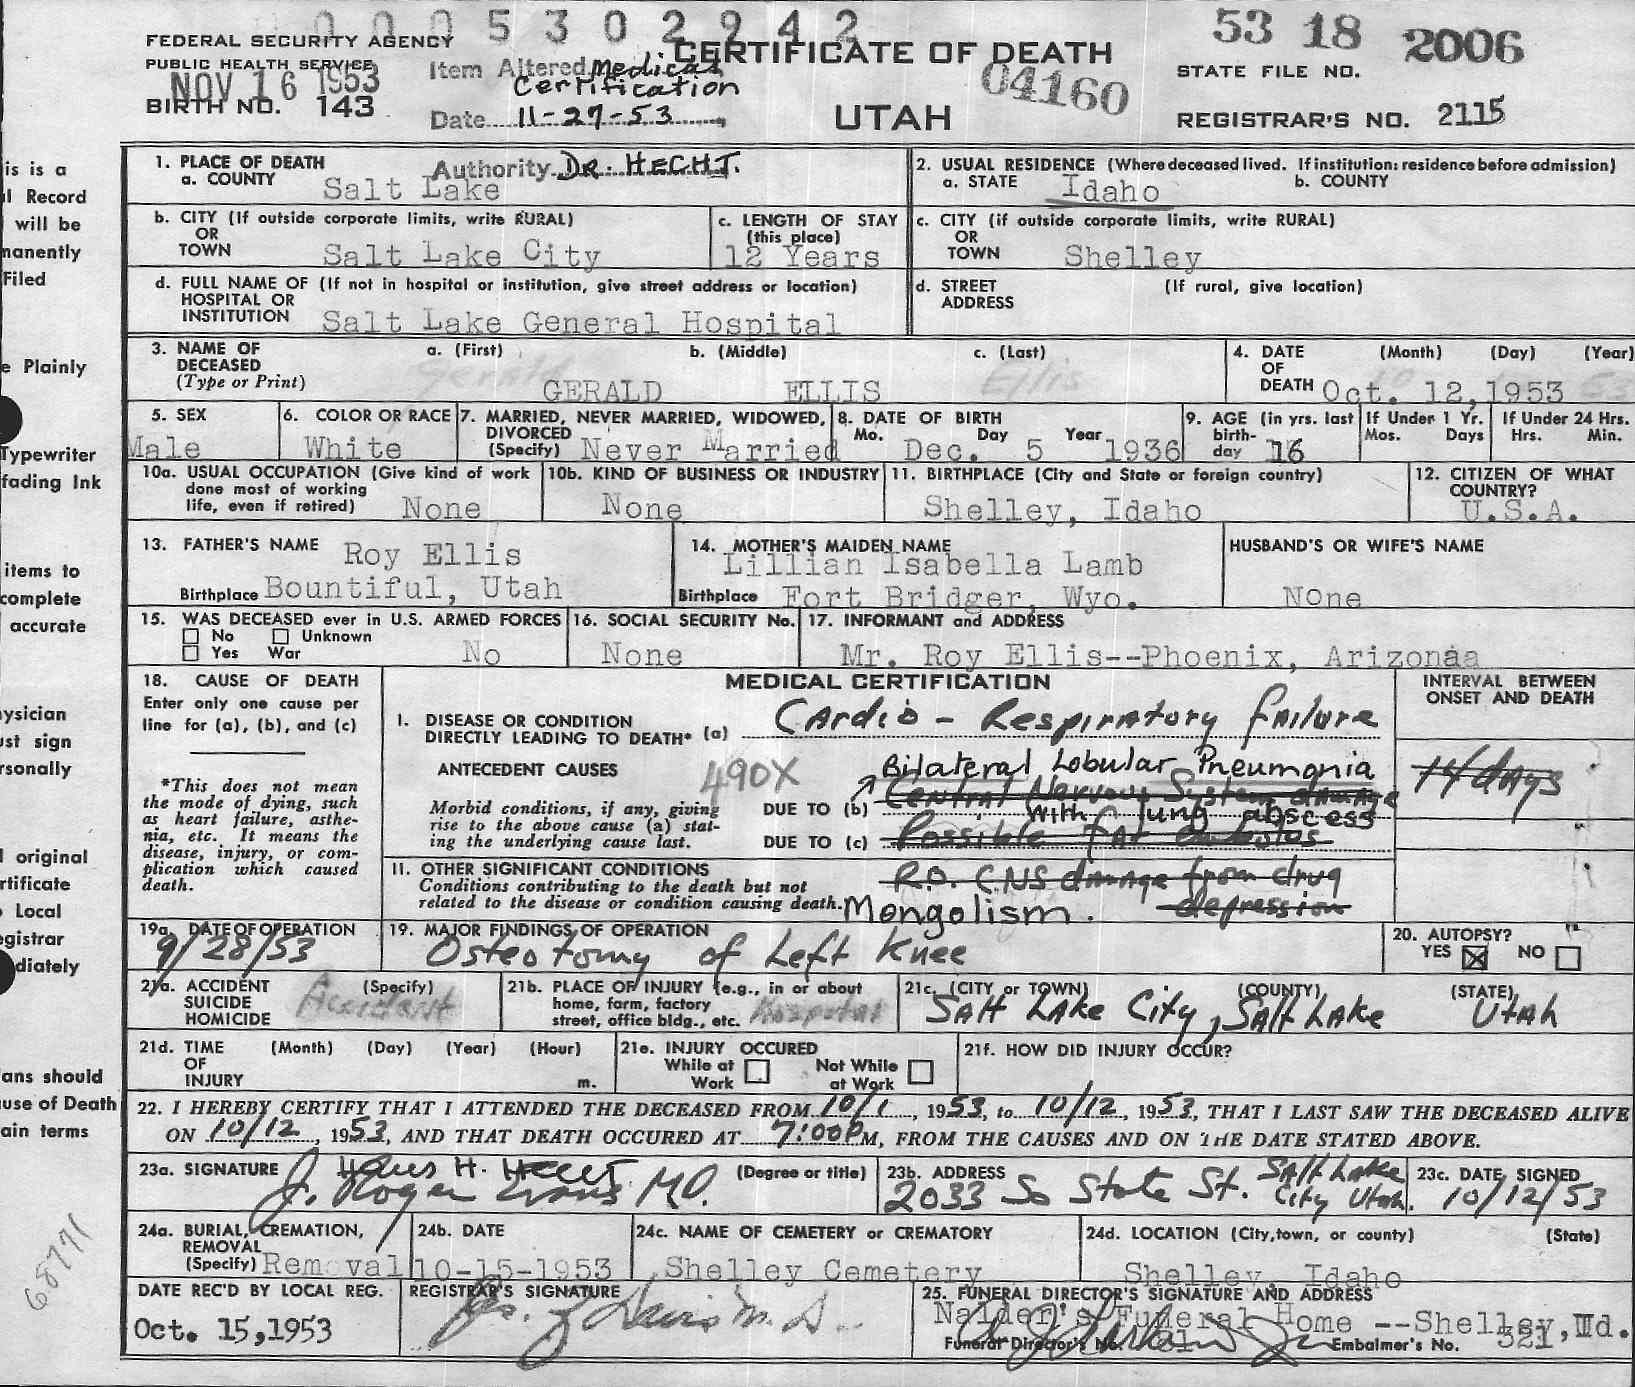 0 0 0 5 3 0 2 9 4 2
53 18 2006
FEDERAL SECURITY AGENCY
PUBLIC HEALTH SERVICE
NOV 16 1953
BIRTH NO. 143
Item Altered Medical
Certification
Date 11-27-53
CERTIFICATE OF DEATH
04160
UTAH
STATE FILE NO.
REGISTRAR'S NO. 2115
is is a
l Record
will be
manently
Filed
e Plainly
Typewriter
fading Ink
items to
complete
accurate
ysician
ust sign
rsonally
l original
rtificate
Local
egistrar
diately
ans should
use of Death
ain terms
68771
1. PLACE OF DEATH
Authority DR. HECHT.
a. COUNTY Salt Lake
2. USUAL RESIDENCE (Where deceased lived. If institution: residence before admission)
a. STATE Idaho b. COUNTY
b. CITY (If outside corporate limits, write RURAL)
OR
TOWN Salt Lake City
c. LENGTH OF STAY
(this place)
12 Years
c. CITY (if outside corporate limits, write RURAL)
OR
TOWN Shelley
d. FULL NAME OF (If not in hospital or institution, give street address or location)
HOSPITAL OR
INSTITUTION Salt Lake General Hospital
d. STREET (If rural, give location)
ADDRESS
3. NAME OF a. (First) b. (Middle) c. (Last)
DECEASED
(Type or Print) Gerald Ellis
GERALD ELLIS
4. DATE (Month) (Day) (Year)
OF
DEATH Oct. 12,1953
5. SEX
Male
6. COLOR OR RACE
White
7. MARRIED, NEVER MARRIED, WIDOWED,
DIVORCED
(Specify) Never Married
8. DATE OF BIRTH
Mo. Day Year
Dec. 5 1936
9. AGE (in yrs. last
birth-
day 16
If Under 1 Yr.
Mos. Days
If Under 24 Hrs.
Hrs. Min.
10a. USUAL OCCUPATION (Give kind of work
done most of working
life, even if retired) None
10b. KIND OF BUSINESS OR INDUSTRY
None
11. BIRTHPLACE (City and State or foreign country)
Shelley, Idaho
12. CITIZEN OF WHAT
COUNTRY?
U.S.A.
13. FATHER'S NAME Roy Ellis
Birthplace Bountiful, Utah
14. MOTHER'S MAIDEN NAME
Lillian Isabella Lamb
Birthplace Fort Bridger, Wyo.
HUSBAND'S OR WIFE'S NAME
None
15. WAS DECEASED ever in U.S. ARMED FORCES
No Unknown
Yes War No
16. SOCIAL SECURITY No.
None
17. INFORMANT and ADDRESS
Mr. Roy Ellis--Phoenix, Arizonaa
18. CAUSE OF DEATH
Enter only one cause per
line for (a), (b), and (c)
*This does not mean
the mode of dying, such
as heart failure, asthe-
nia, etc. It means the
disease, injury, or com-
plication which caused
death.
MEDICAL CERTIFICATION
INTERVAL BETWEEN
ONSET AND DEATH
I. DISEASE OR CONDITION
DIRECTLY LEADING TO DEATH* (a) Cardio - Respiratory failure
ANTECEDENT CAUSES 490X Bilateral Lobular Pneumonia
14 days
Morbid conditions, if any, giving
rise to the above cause (a) stat-
ing the underlying cause last.
DUE TO (b) Central Nervous System damage
with lung abscess
DUE TO (c) Possible fat embolus
II. OTHER SIGNIFICANT CONDITIONS
Conditions contributing to the death but not
related to the disease or condition causing death.
R.O. CNS damage from drug
depression
Mongolism.
19a. DATE OF OPERATION
9/28/53
19. MAJOR FINDINGS OF OPERATION
Osteotomy of Left Knee
20. AUTOPSY?
YES ☒ NO ☐
21a. ACCIDENT (Specify)
SUICIDE
HOMICIDE
Accident
21b. PLACE OF INJURY (e.g., in or about
home, farm, factory
street, office bldg., etc. Hospital
21c. (CITY or TOWN) (COUNTY) (STATE)
Salt Lake City, Salt Lake Utah
21d. TIME (Month) (Day) (Year) (Hour)
OF
INJURY m.
21e. INJURY OCCURED
While at Work Not While at Work
21f. HOW DID INJURY OCCUR?
22. I HEREBY CERTIFY THAT I ATTENDED THE DECEASED FROM 10/1, 1953, to 10/12, 1953, THAT I LAST SAW THE DECEASED ALIVE
ON 10/12, 1953, AND THAT DEATH OCCURED AT 7:00P M, FROM THE CAUSES AND ON THE DATE STATED ABOVE.
23a. SIGNATURE Hans H. Hecht (Degree or title)
J. Roger Evans M.D.
23b. ADDRESS
2033 So State St. Salt Lake
City Utah.
23c. DATE SIGNED
10/12/53
24a. BURIAL, CREMATION,
REMOVAL
(Specify) Removal
24b. DATE
10-15-1953
24c. NAME OF CEMETERY or CREMATORY
Shelley Cemetery
24d. LOCATION (City, town, or county) (State)
Shelley, Idaho
DATE REC'D BY LOCAL REG.
Oct. 15,1953
REGISTRAR'S SIGNATURE
25. FUNERAL DIRECTOR'S SIGNATURE AND ADDRESS
Nalder's Funeral Home --Shelley, Id.
Funeral Director's No. Embalmer's No. 321